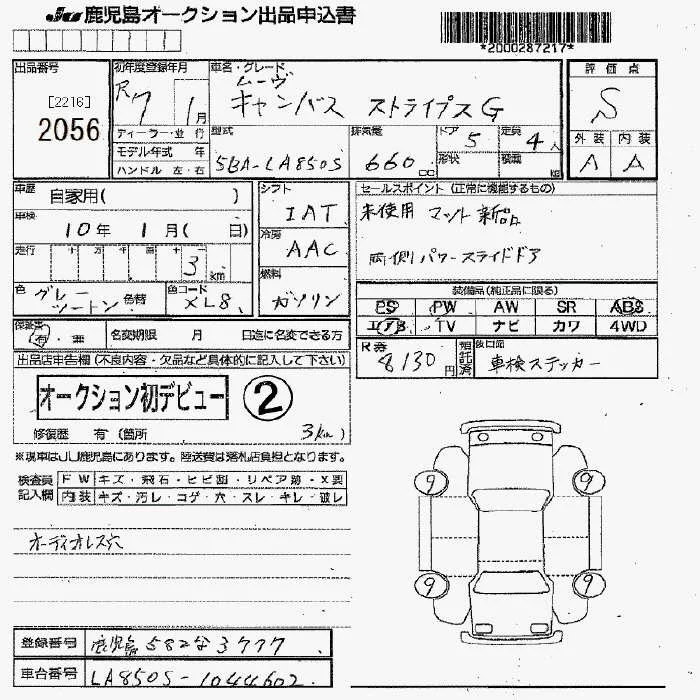 JU 鹿児島オークション出品申込書
*2000287217*
出品番号
[2216]
2056
初年度登録年月
R7 1月
ディーラー・並 行
モデル年式 年
ハンドル 左・右
車名・グレード
ムーヴ
キャンバス ストライプスG
型式
5BA-LA850S
排気量
660 cc
ドア 5
形状
定員 4人
積載 kg
評価点
S
外装 内装
A A
車歴
自家用( )
車検
10年 1月( 日)
走行
十 万 千 百 十 一
3 km
色 グレー ツートン 色替
色コード XL8
シフト
IAT
冷房
AAC
燃料
ガソリン
セールスポイント (正常に機能するもの)
未使用 マット新品
両側パワースライドドア
装備品(純正品に限る)
PS PW AW SR ABS
エアB TV ナビ カワ 4WD
保証書
有・無
名変期限 月 日迄に名変できる方
R券
8130円
預託済
後日図
車検ステッカー
出品店申告欄 (不良内容・欠品など具体的に記入して下さい)
オークション初デビュー ②
修復歴 有 (箇所 3km)
※現車はJU鹿児島にあります。陸送費は落札店負担となります。
検査員記入欄
FW キズ・飛石・ヒビ割・リペア跡・X要
内装 キズ・汚レ・コゲ・穴・スレ・キレ・破レ
オーディオレス穴
9 9
9 9
登録番号 鹿児島 582な3777
車台番号 LA850S-1044602